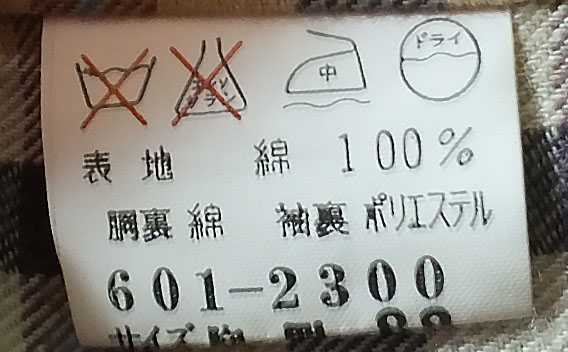 エンソ サラシ 中 ドライ
表地 綿 100%
胴裏 綿 袖裏 ポリエステル
601-2300
サイズ 胸囲 88